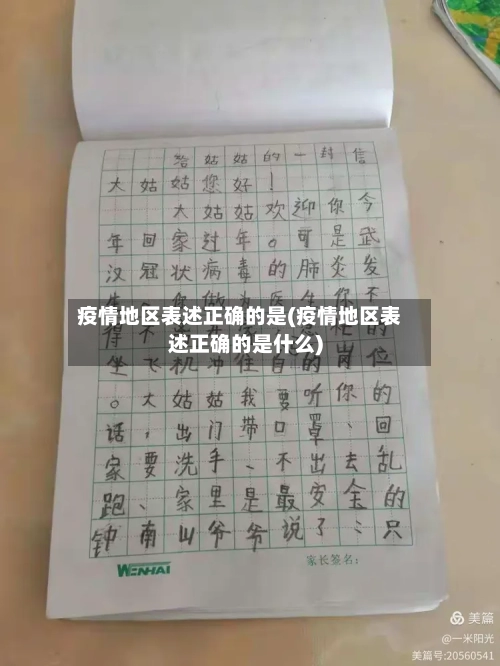 给姑姑的一封信
大姑姑您好！
大姑姑欢迎你今
年回家过年。可是武
汉冠状病毒的肺炎发
疫情地区表述正确的是(疫情地区表
述正确的是什么)
坐飞机冲往自的岗位
。大姑姑我要听你的
话，出门带口罩、回
家要洗手、不出去乱
跑、家里是最安全的
钟南山爷爷说了：只
WENHAI
家长签名：
美篇
@一米阳光
美篇号:20560541